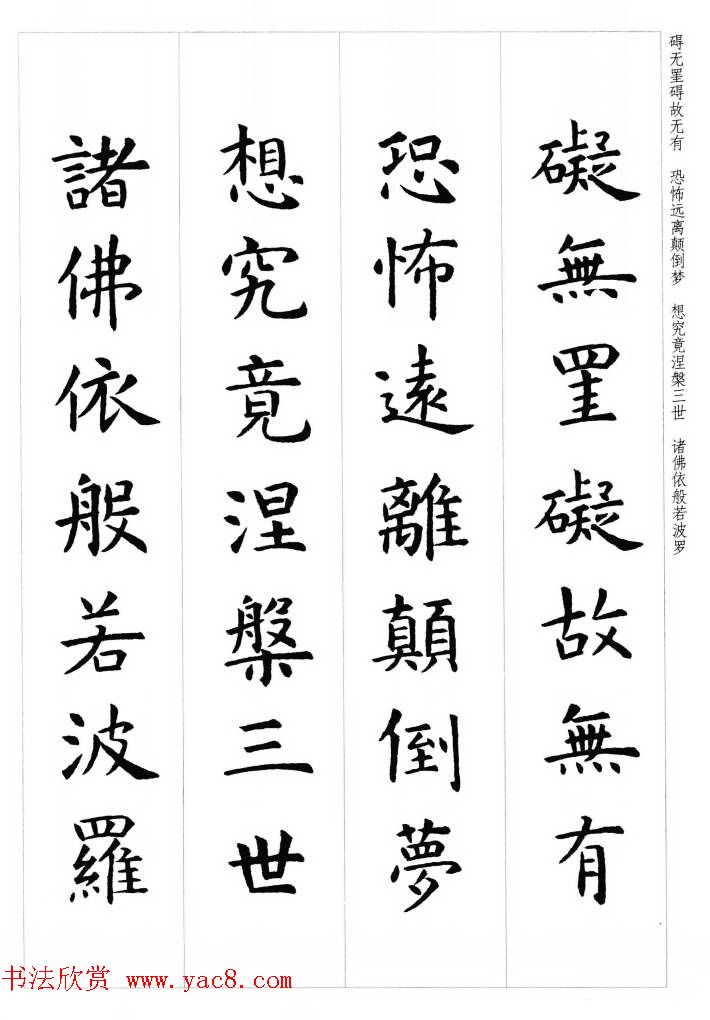 碍无罣碍故无有 恐怖远离颠倒梦 想究竟涅槃三世 诸佛依般若波罗
礙無罣礙故無有
恐怖遠離顛倒夢
想究竟涅槃三世
諸佛依般若波羅
书法欣赏 www.yac8.com